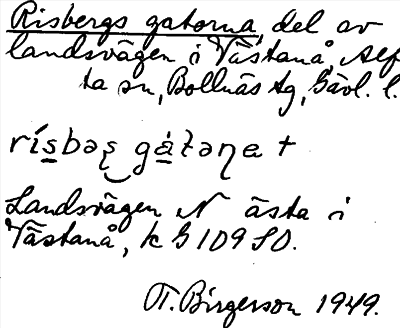 Risbergs gatorna, del av
landsvägen i Västanå, Alf
ta sn, Bollnäs tg, Gävl. l.
rísbəş gátəɳa +
Landsvägen N ästa i
Västanå, k G 109 SO.
T. Birgerson 1949.